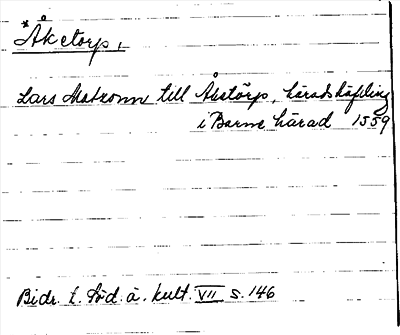 * Åketorp,
Lars Matsonn till Åketorp, häradshäfding
i Barne härad 1559
Bidr. t. Söd. ä. kult. VII s. 146